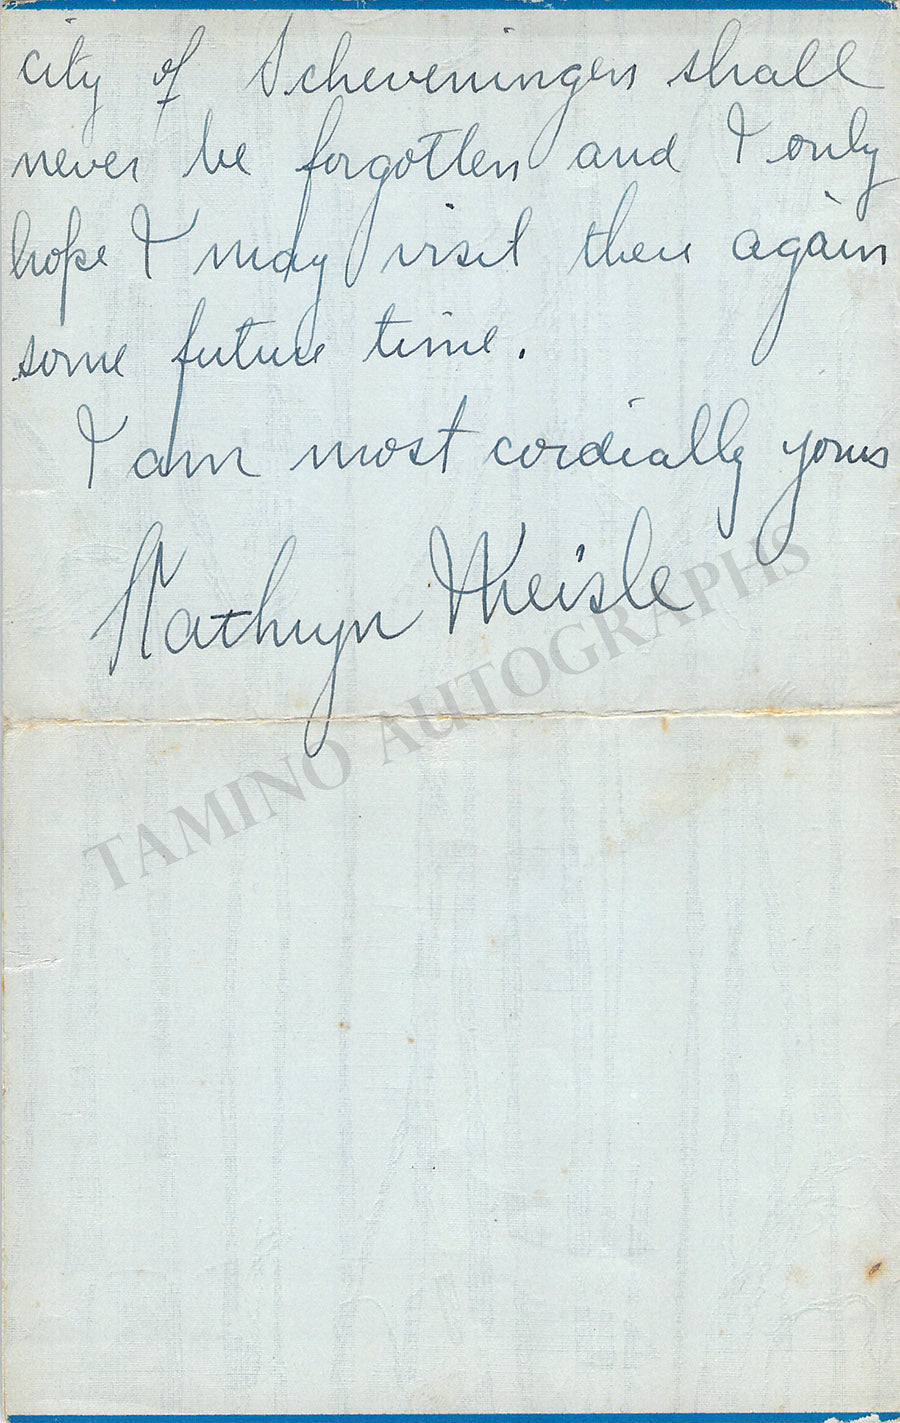 city of Scheveningen shall
never be forgotten and I only
hope I may visit there again
some future time.
I am most cordially yours
Kathryn Meisle
TAMINO AUTOGRAPHS